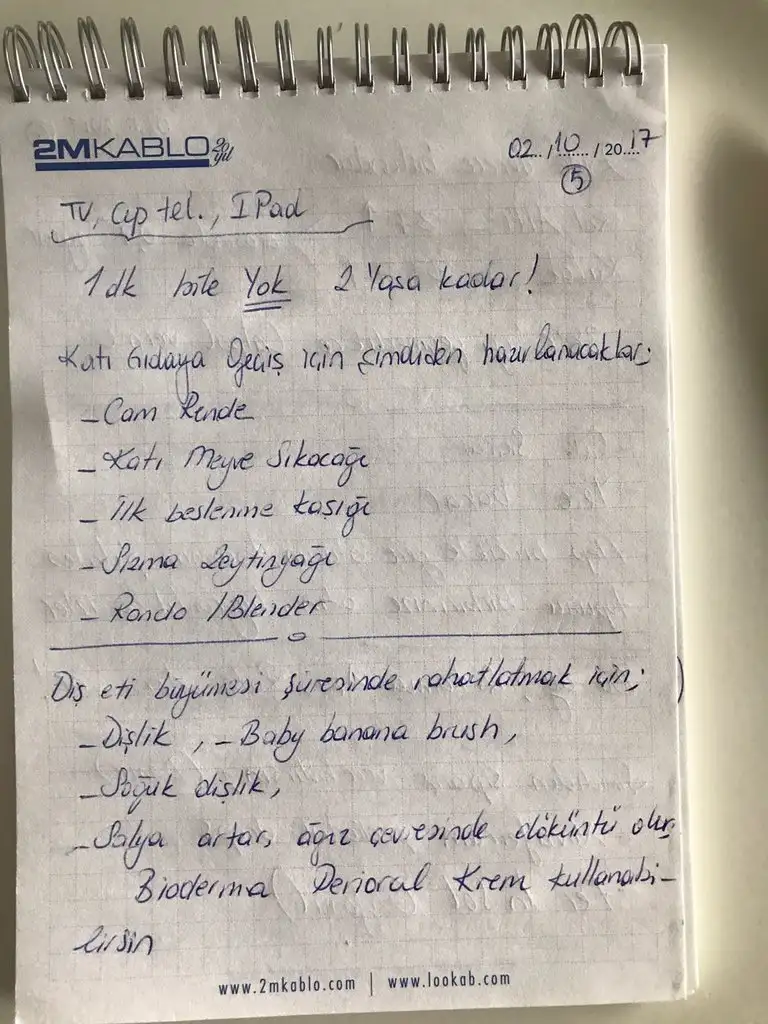 2MKABLO 20 yıl
02 / 10 / 2017
5
TV, Cep tel., IPad
1 dk bile Yok 2 Yaşa kadar!
Katı Gıdaya Geçiş için şimdiden hazırlanacaklar;
- Cam Rende
- Katı Meyve Sıkacağı
- İlk beslenme kaşığı
- Sızma Zeytinyağı
- Rondo / Blender
Diş eti büyümesi süresinde rahatlatmak için;
- Dişlik, - Baby banana brush,
- Soğuk dişlik,
- Salya artar, ağız çevresinde döküntü olur,
Bioderma Perioral Krem kullanabi-
lirsin
www.2mkablo.com | www.lookab.com